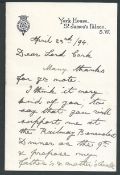 York House,
St James's Palace,
S.W.
April 23rd /94
Dear Lord Cork
Many thanks
for yr note
I think it very
kind of you to
say that you will
support me at
the Railway Benevolent
Dinner on the 9th
& propose my
father's & mother's health